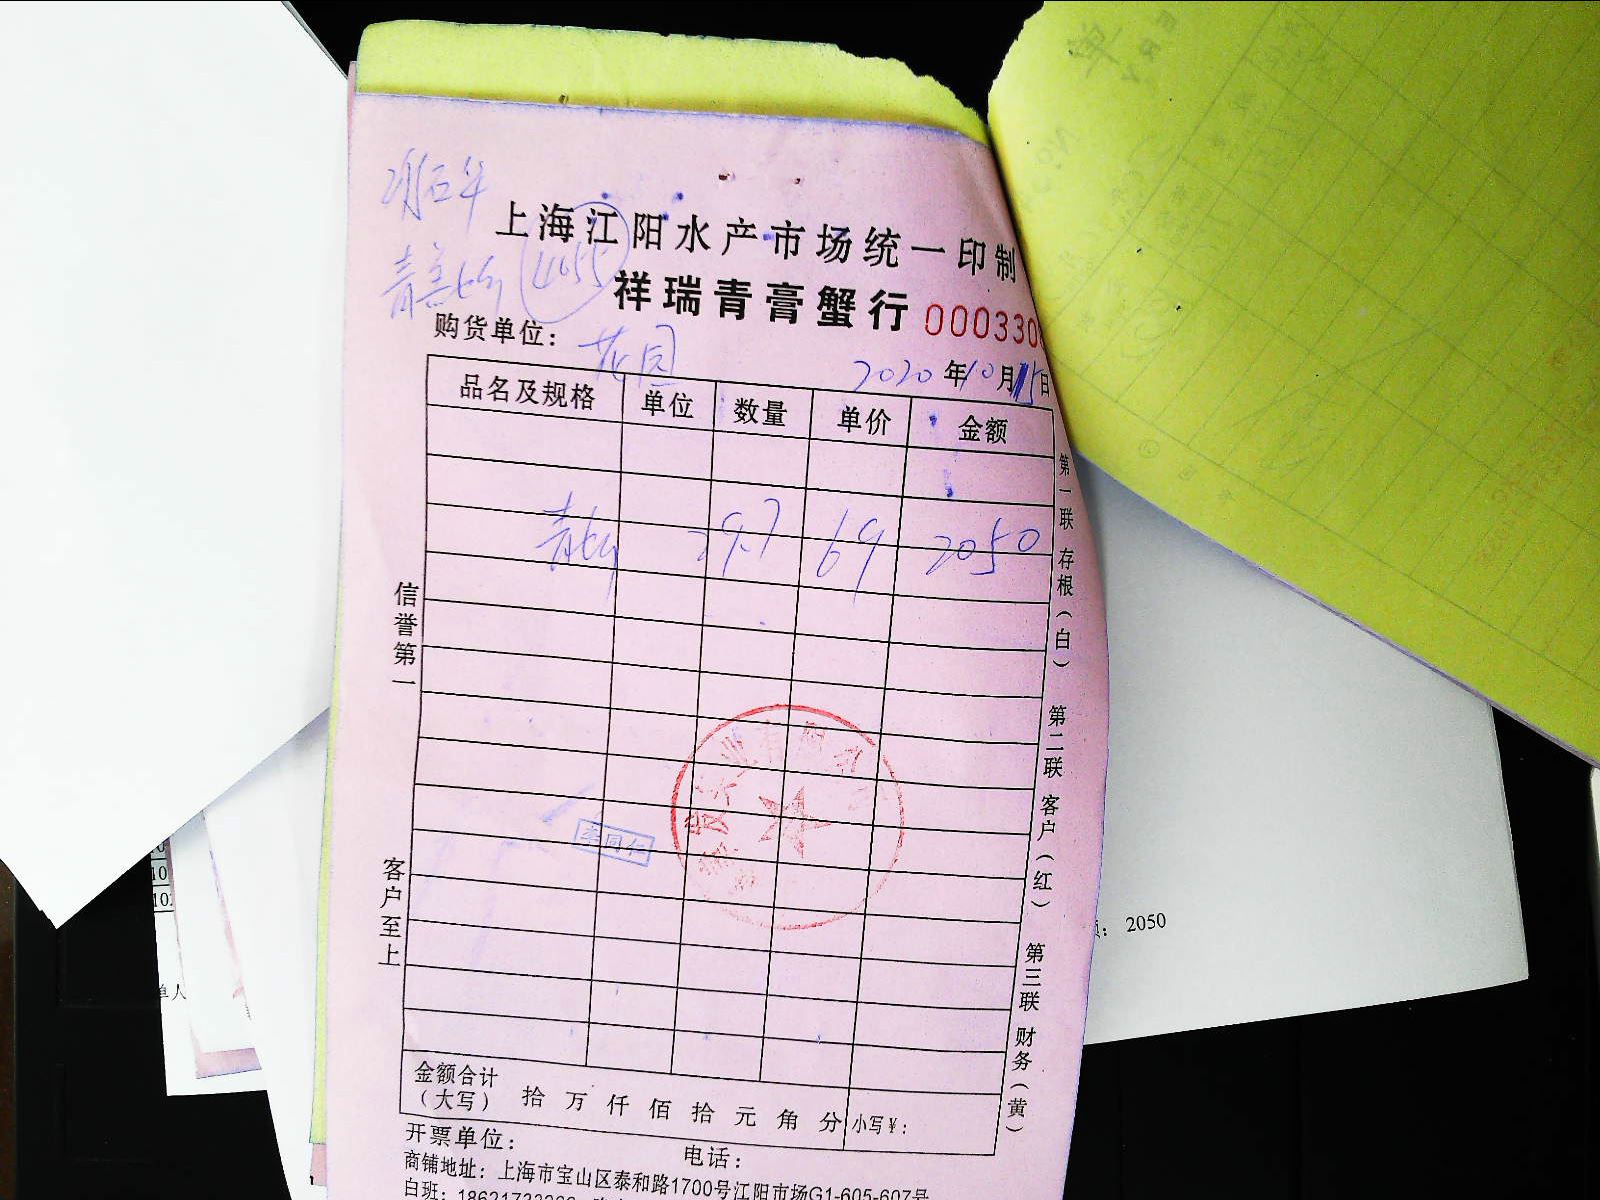 上海江阳水产市场统一印制
4055
祥瑞青膏蟹行 000330
购货单位： 花园
2020 年 10 月 15 日
品名及规格 单位 数量 单价 金额
29.7 69 2050
信誉第一
客户至上
第一联 存根（白） 第二联 客户（红） 第三联 财务（黄）
李同仁
金额合计
（大写） 拾 万 仟 佰 拾 元 角 分 小写￥：
开票单位： 电话：
商铺地址：上海市宝山区泰和路1700号江阳市场G1-605-607号
白班：
10
单人
： 2050